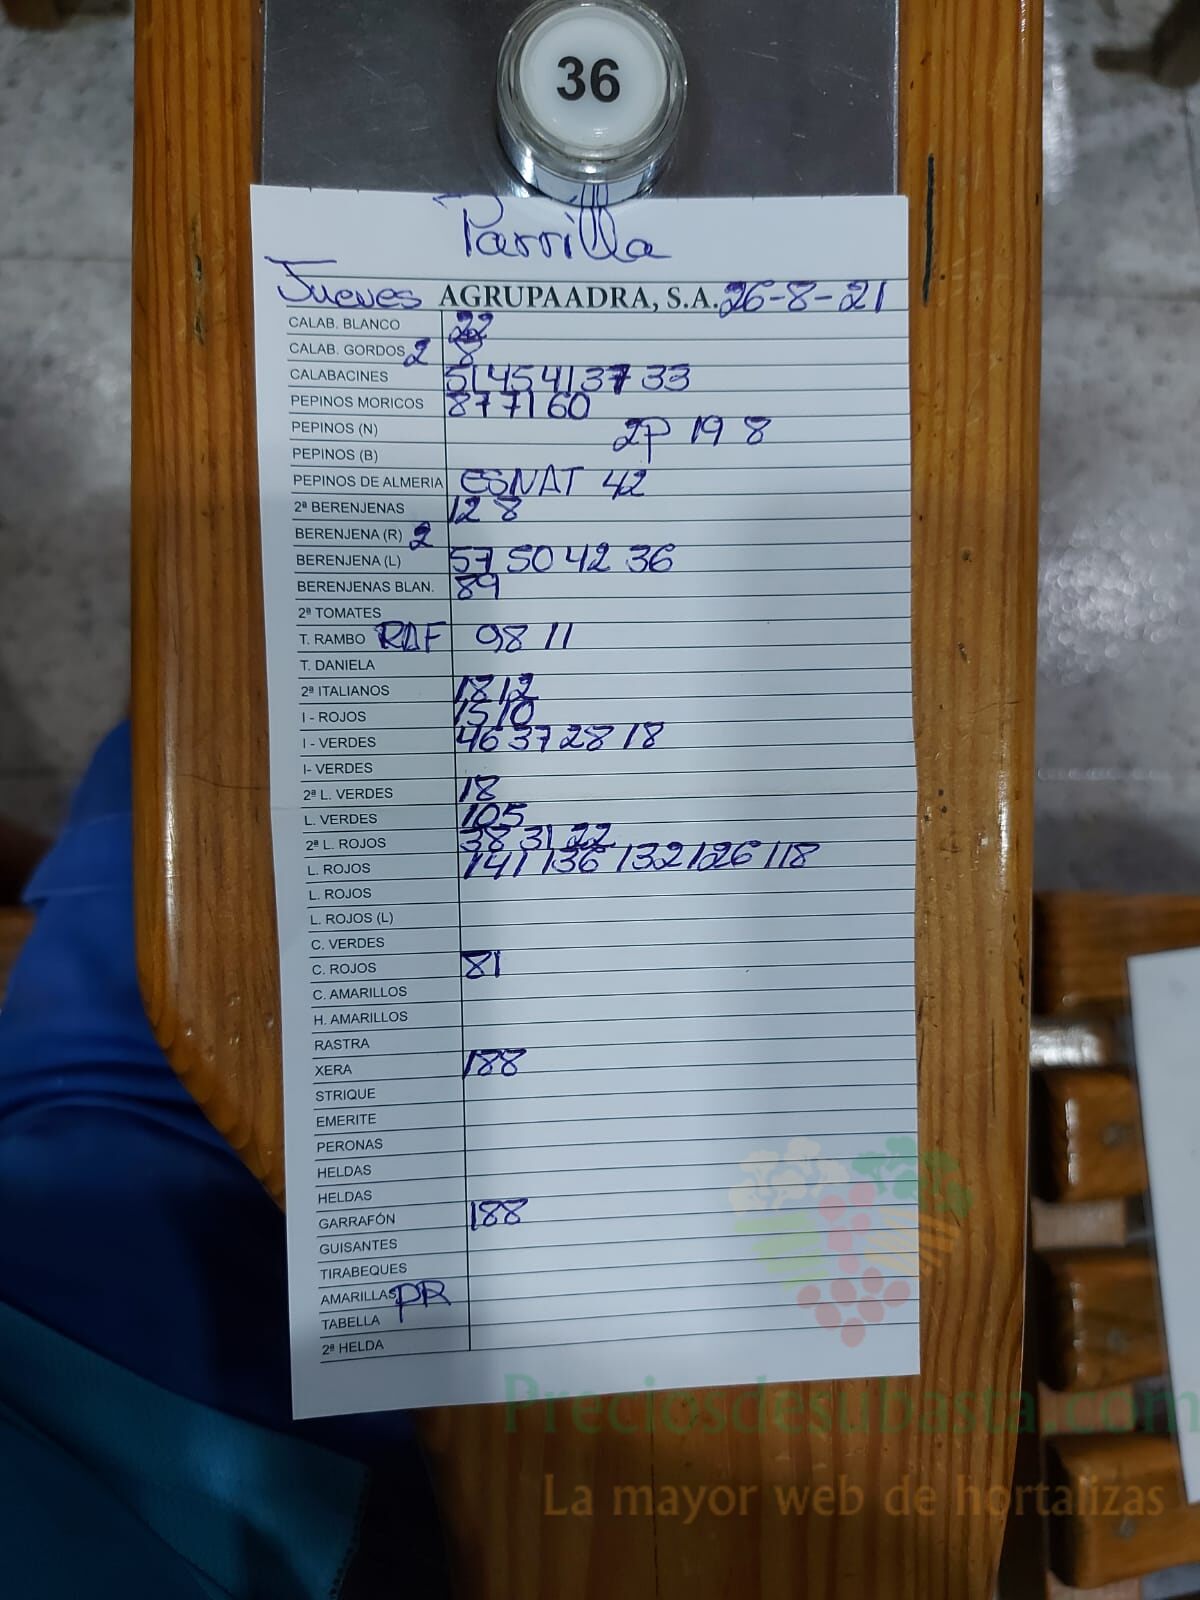 36
Parrilla
Jueves AGRUPAADRA, S.A. 26-8-21
CALAB. BLANCO 22
CALAB. GORDOS 2 8
CALABACINES 51 45 41 37 33
PEPINOS MORICOS 87 71 60
PEPINOS (N) 2P 19 8
PEPINOS (B)
PEPINOS DE ALMERIA ESNAT 42
2ª BERENJENAS 12 8
BERENJENA (R) 2
BERENJENA (L) 57 50 42 36
BERENJENAS BLAN. 89
2ª TOMATES
T. RAMBO RAF 98 11
T. DANIELA
2ª ITALIANOS 18 12
I - ROJOS 15 10
I - VERDES 46 37 28 18
I- VERDES
2ª L. VERDES 18
L. VERDES 105
2ª L. ROJOS 38 31 22
L. ROJOS 141 136 132 126 118
L. ROJOS
L. ROJOS (L)
C. VERDES
C. ROJOS 81
C. AMARILLOS
H. AMARILLOS
RASTRA
XERA 188
STRIQUE
EMERITE
PERONAS
HELDAS
HELDAS
GARRAFÓN 188
GUISANTES
TIRABEQUES
AMARILLAS PR
TABELLA
2ª HELDA
Preciosdesubasta.com
La mayor web de hortalizas